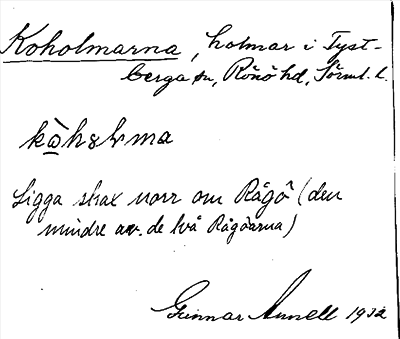 Koholmarna, holmar i Tyst-
berga sn, Rönö hd, Sörml. l.
kò̱hɜɬma
Ligga strax norr om Rågö (den
mindre av de två Rågöarna)
Gunnar Annell 1932